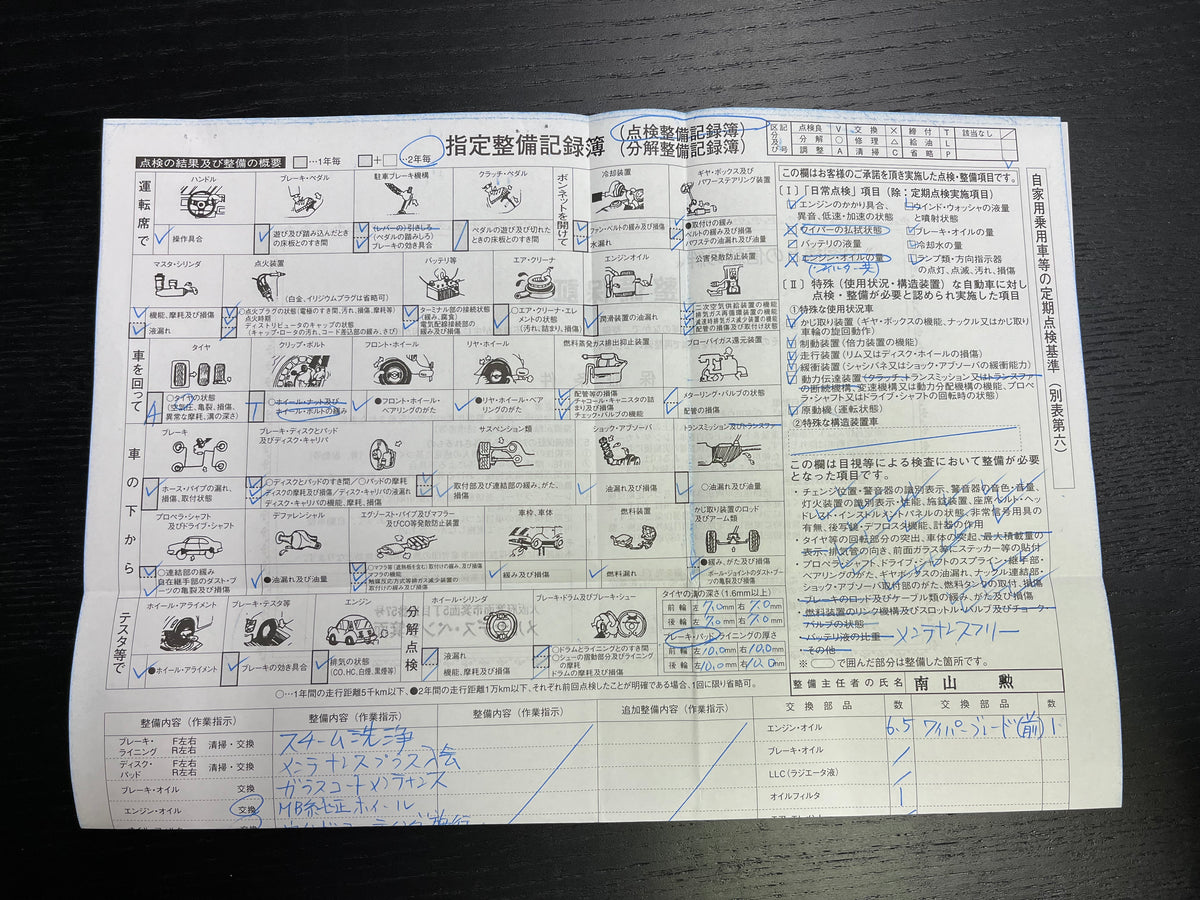 指定整備記録簿
(点検整備記録簿)
(分解整備記録簿)
区分及び記号
点検良 V 交換 X 締付 T 該当なし /
分解 ○ 修理 △ 給油 L
調整 A 清掃 C 省略 P
点検の結果及び整備の概要 □…1年毎 □+□…2年毎
運転席で
ハンドル
操作具合
ブレーキ・ペダル
遊び及び踏み込んだとき
の床板とのすき間
駐車ブレーキ機構
(レバーの)引きしろ
(ペダルの踏みしろ)
ブレーキの効き具合
クラッチ・ペダル
ペダルの遊び及び切れた
ときの床板とのすき間
ボンネットを開けて
冷却装置
ファン・ベルトの緩み及び損傷
水漏れ
ギヤ・ボックス及び
パワーステアリング装置
●取付けの緩み
ベルトの緩み及び損傷
パワステの油漏れ及び油量
マスタ・シリンダ
機能、摩耗及び損傷
液漏れ
点火装置
(白金、イリジウムプラグは省略可)
○点火プラグの状態(電極のすき間、汚れ、損傷、摩耗等)
点火時期
ディストリビュータのキャップの状態
(キャップ・ロータの汚れ、コード差込部の緩み、さび)
バッテリ等
ターミナル部の接続状態
(緩み、腐食)
電気配線接続部の
緩み及び損傷
エア・クリーナ
○エア・クリーナ・エレ
メントの状態
(汚れ、詰まり、損傷)
エンジンオイル
潤滑装置の油漏れ
公害発散防止装置
二次空気供給装置の機能
排気ガス再循環装置の機能
減速時排気ガス減少装置の機能
配管の損傷及び取付け状態
車を回って
タイヤ
A
○タイヤの状態
(空気圧、亀裂、損傷、
異常な摩耗、溝の深さ)
クリップ・ボルト
T
○ホイール・ナット及び
ホイール・ボルトの緩み
フロント・ホイール
●フロント・ホイール
・ベアリングのがた
リヤ・ホイール
●リヤ・ホイール・ベア
リングのがた
燃料蒸発ガス排出抑止装置
配管等の損傷
チャコール・キャニスタの詰
まり及び損傷
チェック・バルブの機能
ブローバイガス還元装置
メターリング・バルブの状態
配管の損傷
車の下から
ブレーキ
ホース・パイプの漏れ、
損傷、取付状態
ブレーキ・ディスクとパッド
及びディスク・キャリパ
○ディスクとパッドのすき間/○パッドの摩耗
ディスクの摩耗及び損傷/ディスク・キャリパの液漏れ
ディスク・キャリパの機能、摩耗、損傷
サスペンション類
取付部及び連結部の緩み、がた、
損傷
ショック・アブソーバ
油漏れ及び損傷
トランスミッション及びトランスファー
○油漏れ及び油量
プロペラ・シャフト
及びドライブ・シャフト
○連結部の緩み
自在継手部のダスト・ブ
ーツの亀裂及び損傷
デファレンシャル
●油漏れ及び油量
エグゾースト・パイプ及びマフラー
及びCO等発散防止装置
○マフラ等(遮熱板を含む)取付けの緩み、及び損傷
マフラの機能
触媒反応方式等排ガス減少装置の
取付けの緩み及び損傷
車枠、車体
緩み及び損傷
燃料装置
燃料漏れ
かじ取り装置のロッド
及びアーム類
●緩み、がた及び損傷
ボール・ジョイントのダスト・ブー
ツの亀裂及び損傷
テスタ等で
ホイール・アライメント
●ホイール・アライメント
ブレーキ・テスタ等
ブレーキの効き具合
エンジン
排気の状態
(CO、HC、白煙、黒煙等)
分解点検
ホイール・シリンダ
液漏れ
機能、摩耗及び損傷
ブレーキ・ドラム及びブレーキ・シュー
○ドラムとライニングとのすき間
○シューの摺動部分及びライニング
の摩耗
ドラムの摩耗及び損傷
タイヤの溝の深さ(1.6mm以上)
前輪 左 7.0mm 右 7.0mm
後輪 左 7.0mm 右 7.0mm
ブレーキ・パッド、ライニングの厚さ
前輪 左 10.0mm 右 10.0mm
後輪 左 10.0mm 右 10.0mm
○…1年間の走行距離5千km以下、●2年間の走行距離1万km以下、それぞれ前回点検したことが明確である場合、1回に限り省略可。
この欄はお客様のご承諾を頂き実施した点検・整備項目です。
[Ⅰ]「日常点検」項目(除:定期点検実施項目)
エンジンのかかり具合、
異音、低速・加速の状態
ワイパーの払拭状態
バッテリの液量
エンジン・オイルの量
ウインド・ウォッシャの液量
と噴射状態
ブレーキ・オイルの量
冷却水の量
ランプ類・方向指示器
の点灯、点滅、汚れ、損傷
[Ⅱ]特殊(使用状況・構造装置)な自動車に対し
点検・整備が必要と認められ実施した項目
①特殊な使用状況車
かじ取り装置(ギヤ・ボックスの機能、ナックル又はかじ取り
車輪の旋回動作)
制動装置(倍力装置の機能)
走行装置(リム又はディスク・ホイールの損傷)
緩衝装置(シャシバネ又はショック・アブソーバの緩衝能力)
動力伝達装置(クラッチ、トランスミッション又はトランスファ
ーの断続機構、変速機構又は動力分配機構の機能、プロペ
ラ・シャフト又はドライブ・シャフトの回転時の状態)
原動機(運転状態)
②特殊な構造装置車
この欄は目視等による検査において整備が必要
となった項目です。
・チェンジ位置・警音器の識別表示、警音器の音色・音量、
灯火装置の識別表示・性能、施錠装置、座席ベルト・ヘッ
ドレスト・インストルメントパネルの状態、非常信号用具の
有無、後写鏡・デフロスタ機能、計器の作用
・タイヤ等の回転部分の突出、車体の突起、最大積載量の
表示、排気管の向き、前面ガラス等にステッカー等の貼付
・プロペラ・シャフト、ドライブ・シャフトのスプライン・継手部・
ベアリングのがた、ギヤボックスの油漏れ、ナックル連結部・
ショック・アブソーバ取付部のがた、燃料タンクの取付、損傷
・ブレーキのロッド及びケーブル類の緩み、がた及び損傷
・燃料装置のリンク機構及びスロットルバルブ及びチョーク・
バルブの状態
・バッテリ液の比重 メンテナンスフリー
・その他
※ ○ で囲んだ部分は整備した箇所です。
整備主任者の氏名 南山 勲
自家用乗用車等の定期点検基準(別表第六)
整備内容(作業指示) 整備内容(作業指示) 整備内容(作業指示) 追加整備内容(作業指示) 交換部品 数 交換部品 数
ブレーキ・ライニング F左右 R左右 清掃・交換 スチーム洗浄 エンジン・オイル 6.5 ワイパーブレード(前) 1
ディスク・パッド F左右 R左右 清掃・交換 メンテナンスプラス入会 ブレーキ・オイル
ブレーキ・オイル 交換 ガラスコートメンテナンス LLC(ラジエータ液)
エンジン・オイル 交換 MB純正ホイール オイルフィルタ 1